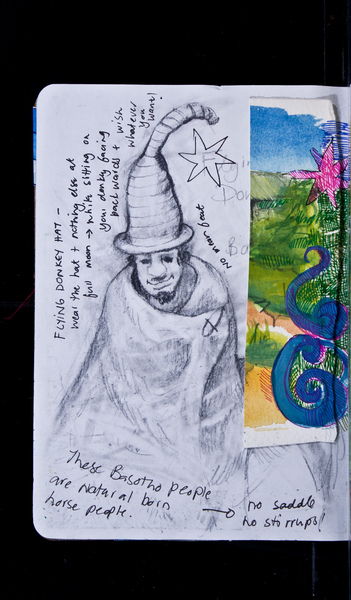 FLYING DONKEY HAT –
wear the hat + nothing else at
full moon → while sitting on
your donkey facing
backwards + wish
whatever
you
want!
Don
Ba
These Basotho people
are natural born
horse people.
→ no saddle
no stirrups!